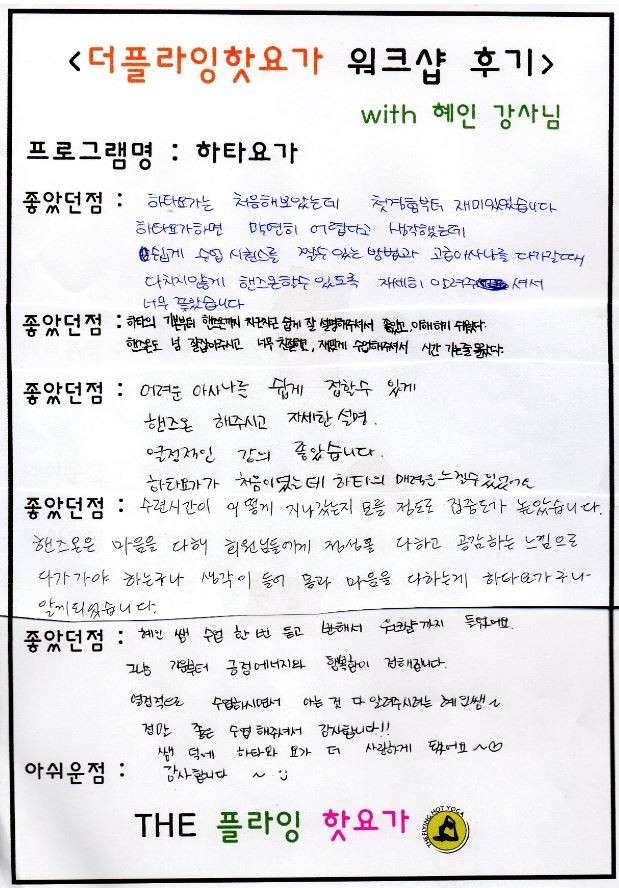 <더플라잉핫요가 워크샵 후기>
with 혜인 강사님
프로그램명 : 하타요가
좋았던점 : 하타요가는 처음해보았는데 첫경험부터 재미있었습니다
하타요가하면 막연히 어렵다고 생각했는데
쉽게 수업 시퀀스를 짤수 있는 방법과 고급아사나를 다가갈때
다치지않게 핸즈온할수 있도록 자세히 알려주셔서
너무 좋았습니다
좋았던점 : 하타의 기본부터 핸즈온까지 차근차근 쉽게 잘 설명해주셔서 좋았고 이해하기 쉬웠다.
핸즈온도 넘 잘잡아주시고 너무 친절하고, 재밌게 수업해주셔서 시간 가는줄 몰랐다.
좋았던점 : 어려운 아사나를 쉽게 접할수 있게
핸즈온 해주시고 자세한 설명.
열정적인 강의 좋았습니다.
하타요가가 처음이였는데 하타의 매력을 느낄수 있었어요
좋았던점 : 수련시간이 어떻게 지나갔는지 모를 정도로 집중도가 높았습니다.
핸즈온은 마음을 다해 회원님들에게 정성을 다하고 공감하는 느낌으로
다가가야 하는구나 생각이 들어 몸과 마음을 다하는게 하타요가구나-
알게되었습니다.
좋았던점 : 혜인 쌤 수업 한 번 듣고 반해서 워크샵까지 들었어요.
그냥 기본부터 긍정에너지와 행복함이 전해집니다.
열정적으로 수업하시면서 아는 것 다 알려주시려는 혜인쌤~
정말 좋은 수업 해주셔서 감사합니다!!
쌤 덕에 하타와 요가 더 사랑하게 됐어요~♡
아쉬운점 : 감사합니다 ~ :)
THE 플라잉 핫요가
THE FLYING HOT YOGA